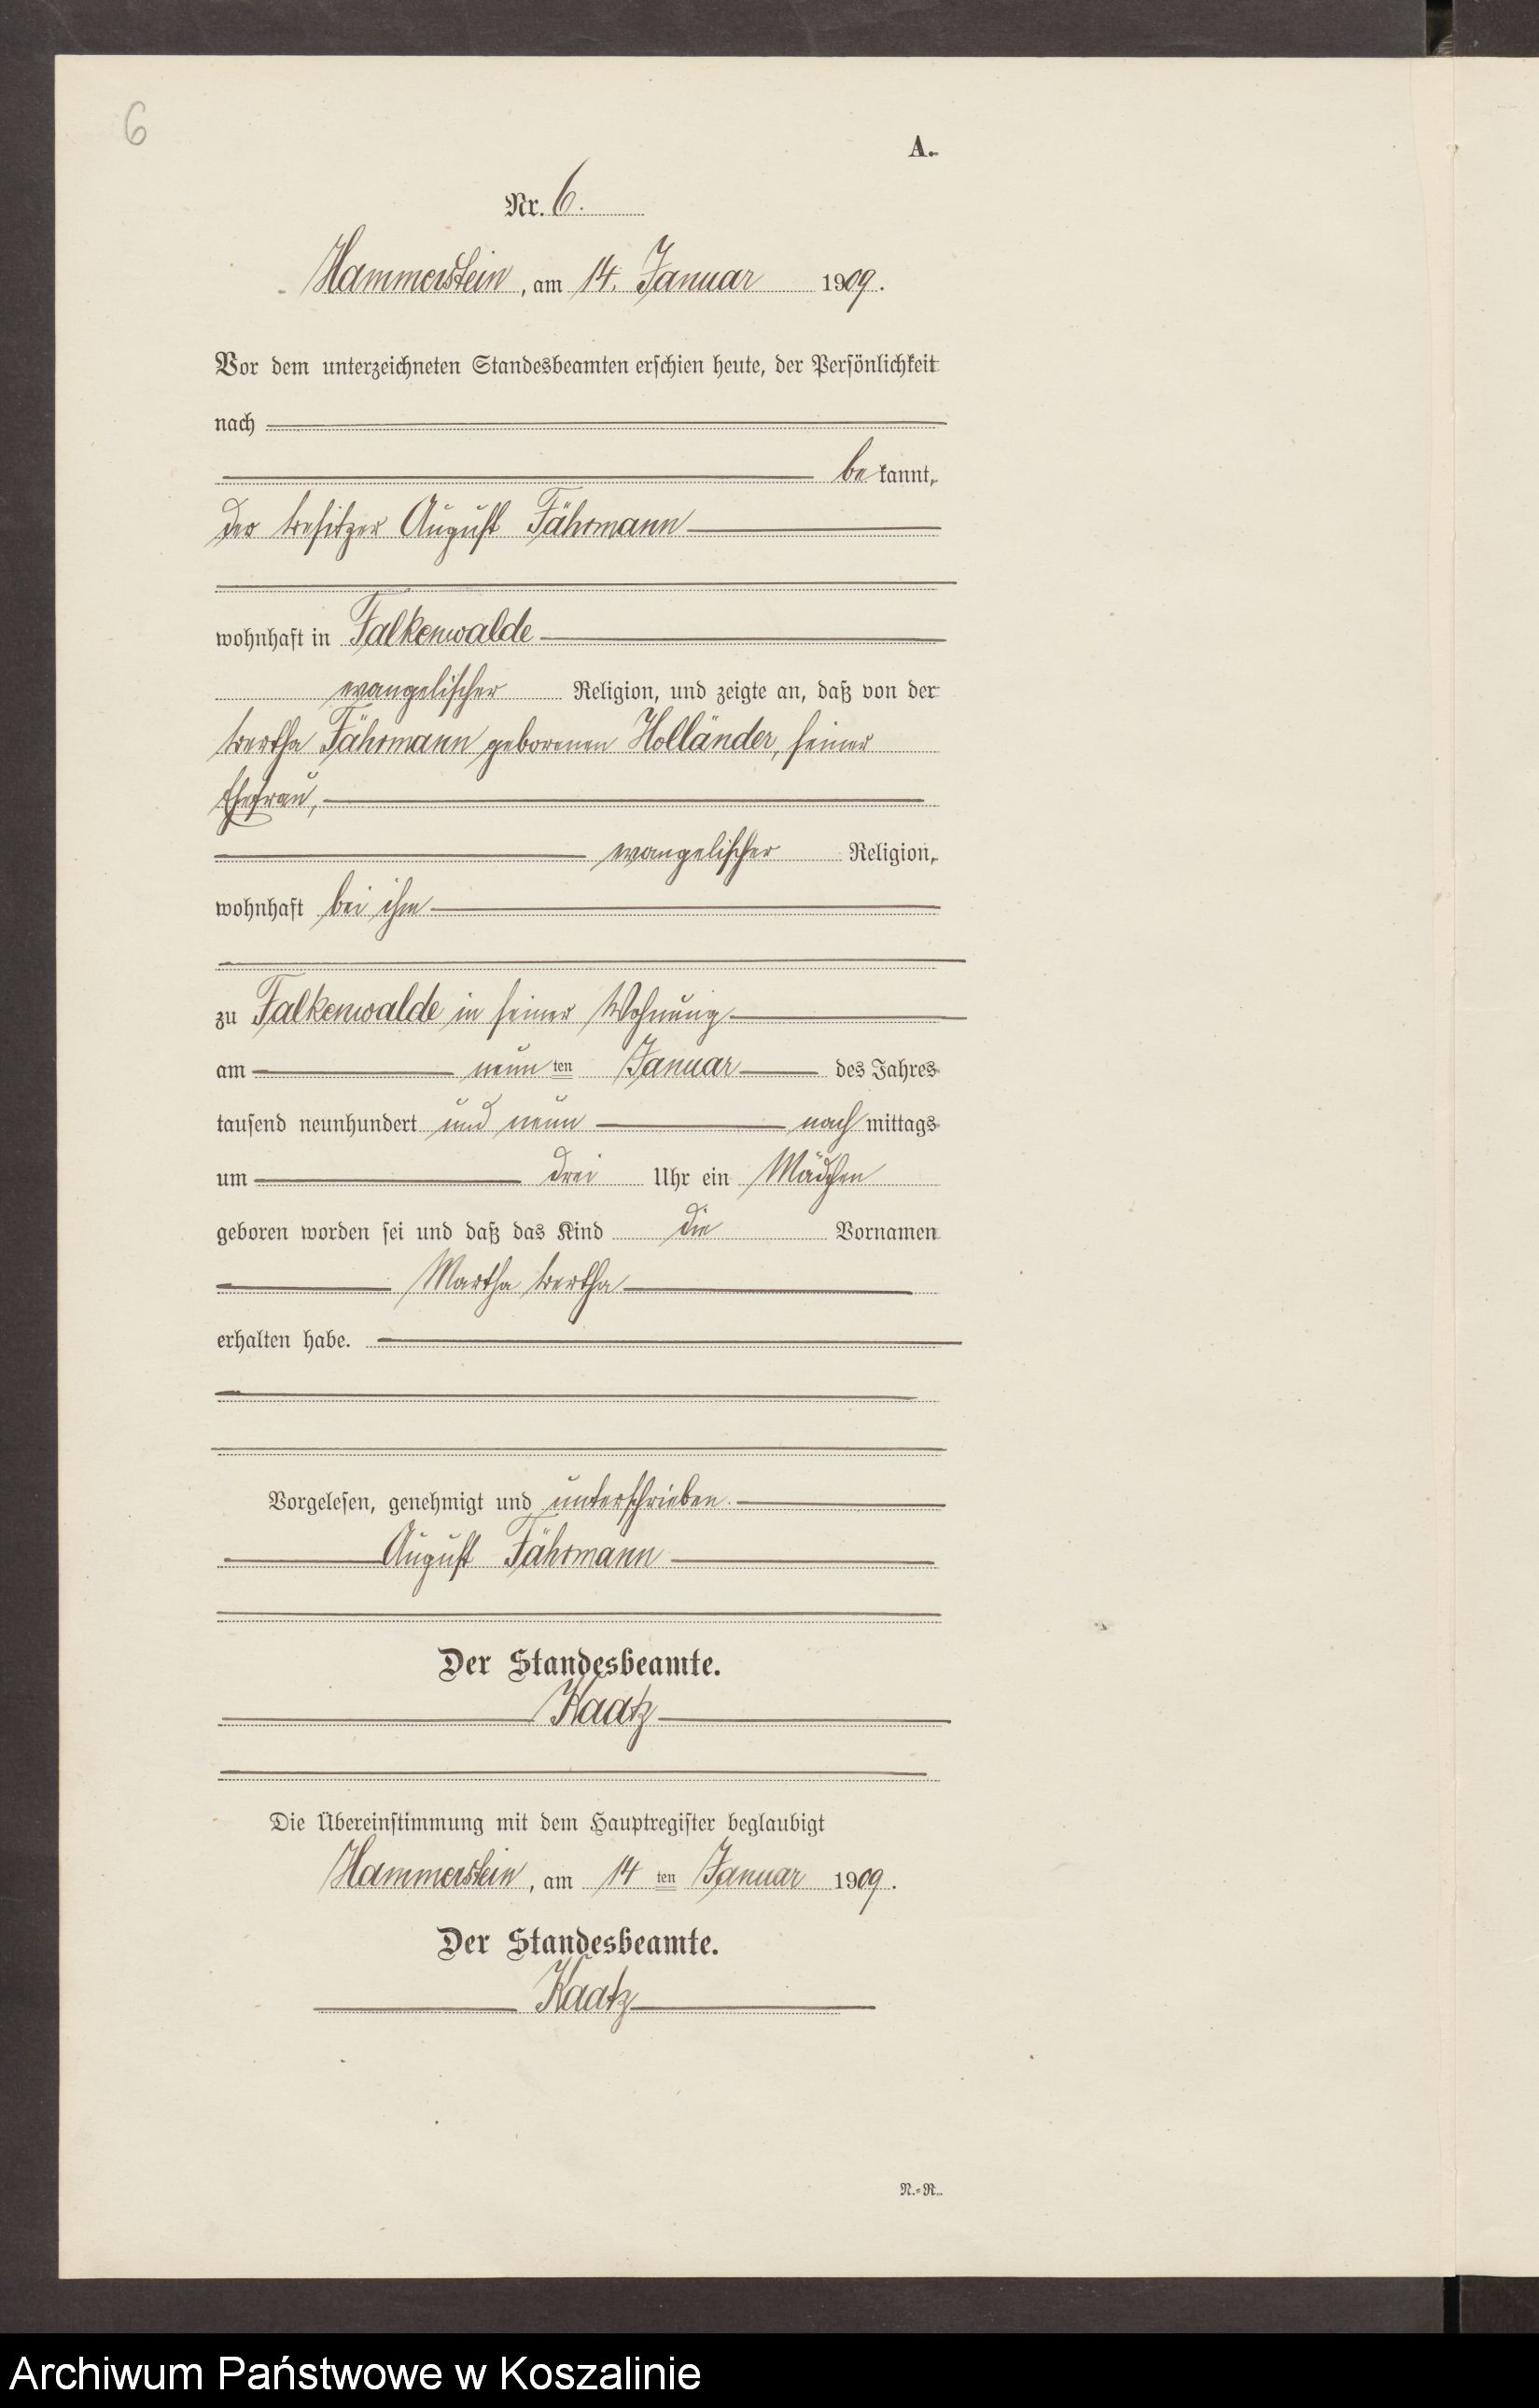 6
A.
Nr. 6.
Hammerstein, am 14. Januar 1909.
Vor dem unterzeichneten Standesbeamten erschien heute, der Persönlichkeit
nach
be kannt,
der Besitzer August Fährmann
wohnhaft in Falkenwalde
evangelischer Religion, und zeigte an, daß von der
Bertha Fährmann geborenen Holländer, seiner
Ehefrau,
evangelischer Religion,
wohnhaft bei ihm
zu Falkenwalde in seiner Wohnung
am neun ten Januar des Jahres
tausend neunhundert und neun nach mittags
um drei Uhr ein Mädchen
geboren worden sei und daß das Kind die Vornamen
Martha Bertha
erhalten habe.
Vorgelesen, genehmigt und unterschrieben.
August Fährmann
Der Standesbeamte.
Kaatz
Die Übereinstimmung mit dem Hauptregister beglaubigt
Hammerstein, am 14 ten Januar 1909.
Der Standesbeamte.
Kaatz
N.=R.
Archiwum Państwowe w Koszalinie